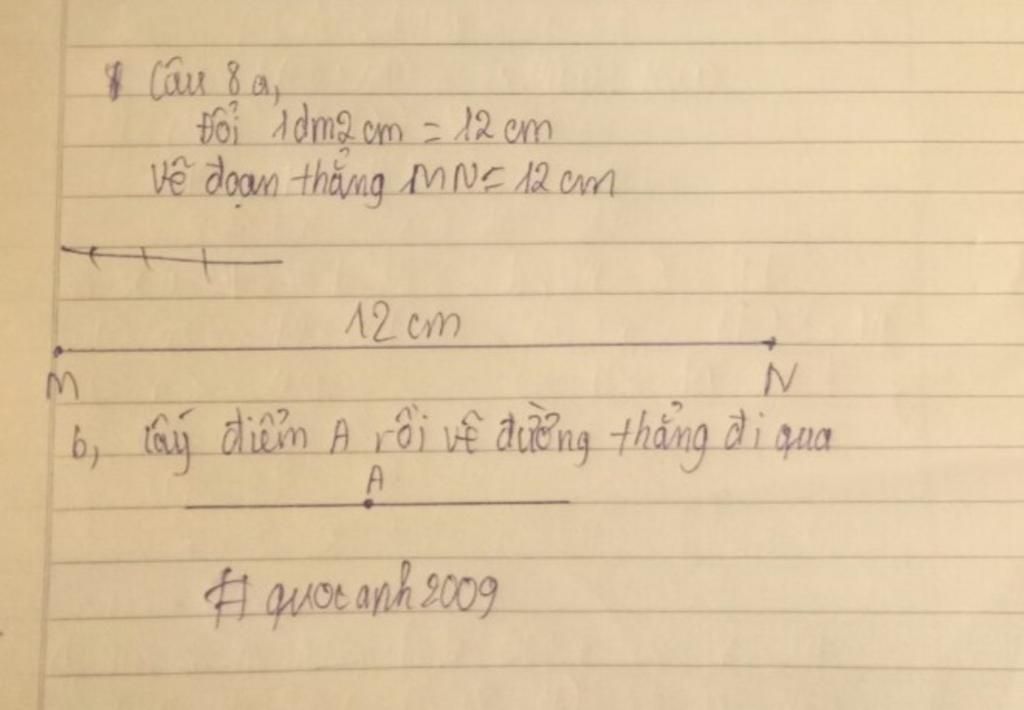 Câu 8 a,
Đổi 1dm2cm = 12 cm
Vẽ đoạn thẳng MN = 12 cm
12 cm
M N
b, Lấy điểm A rồi vẽ đường thẳng đi qua
A
# quocanh2009